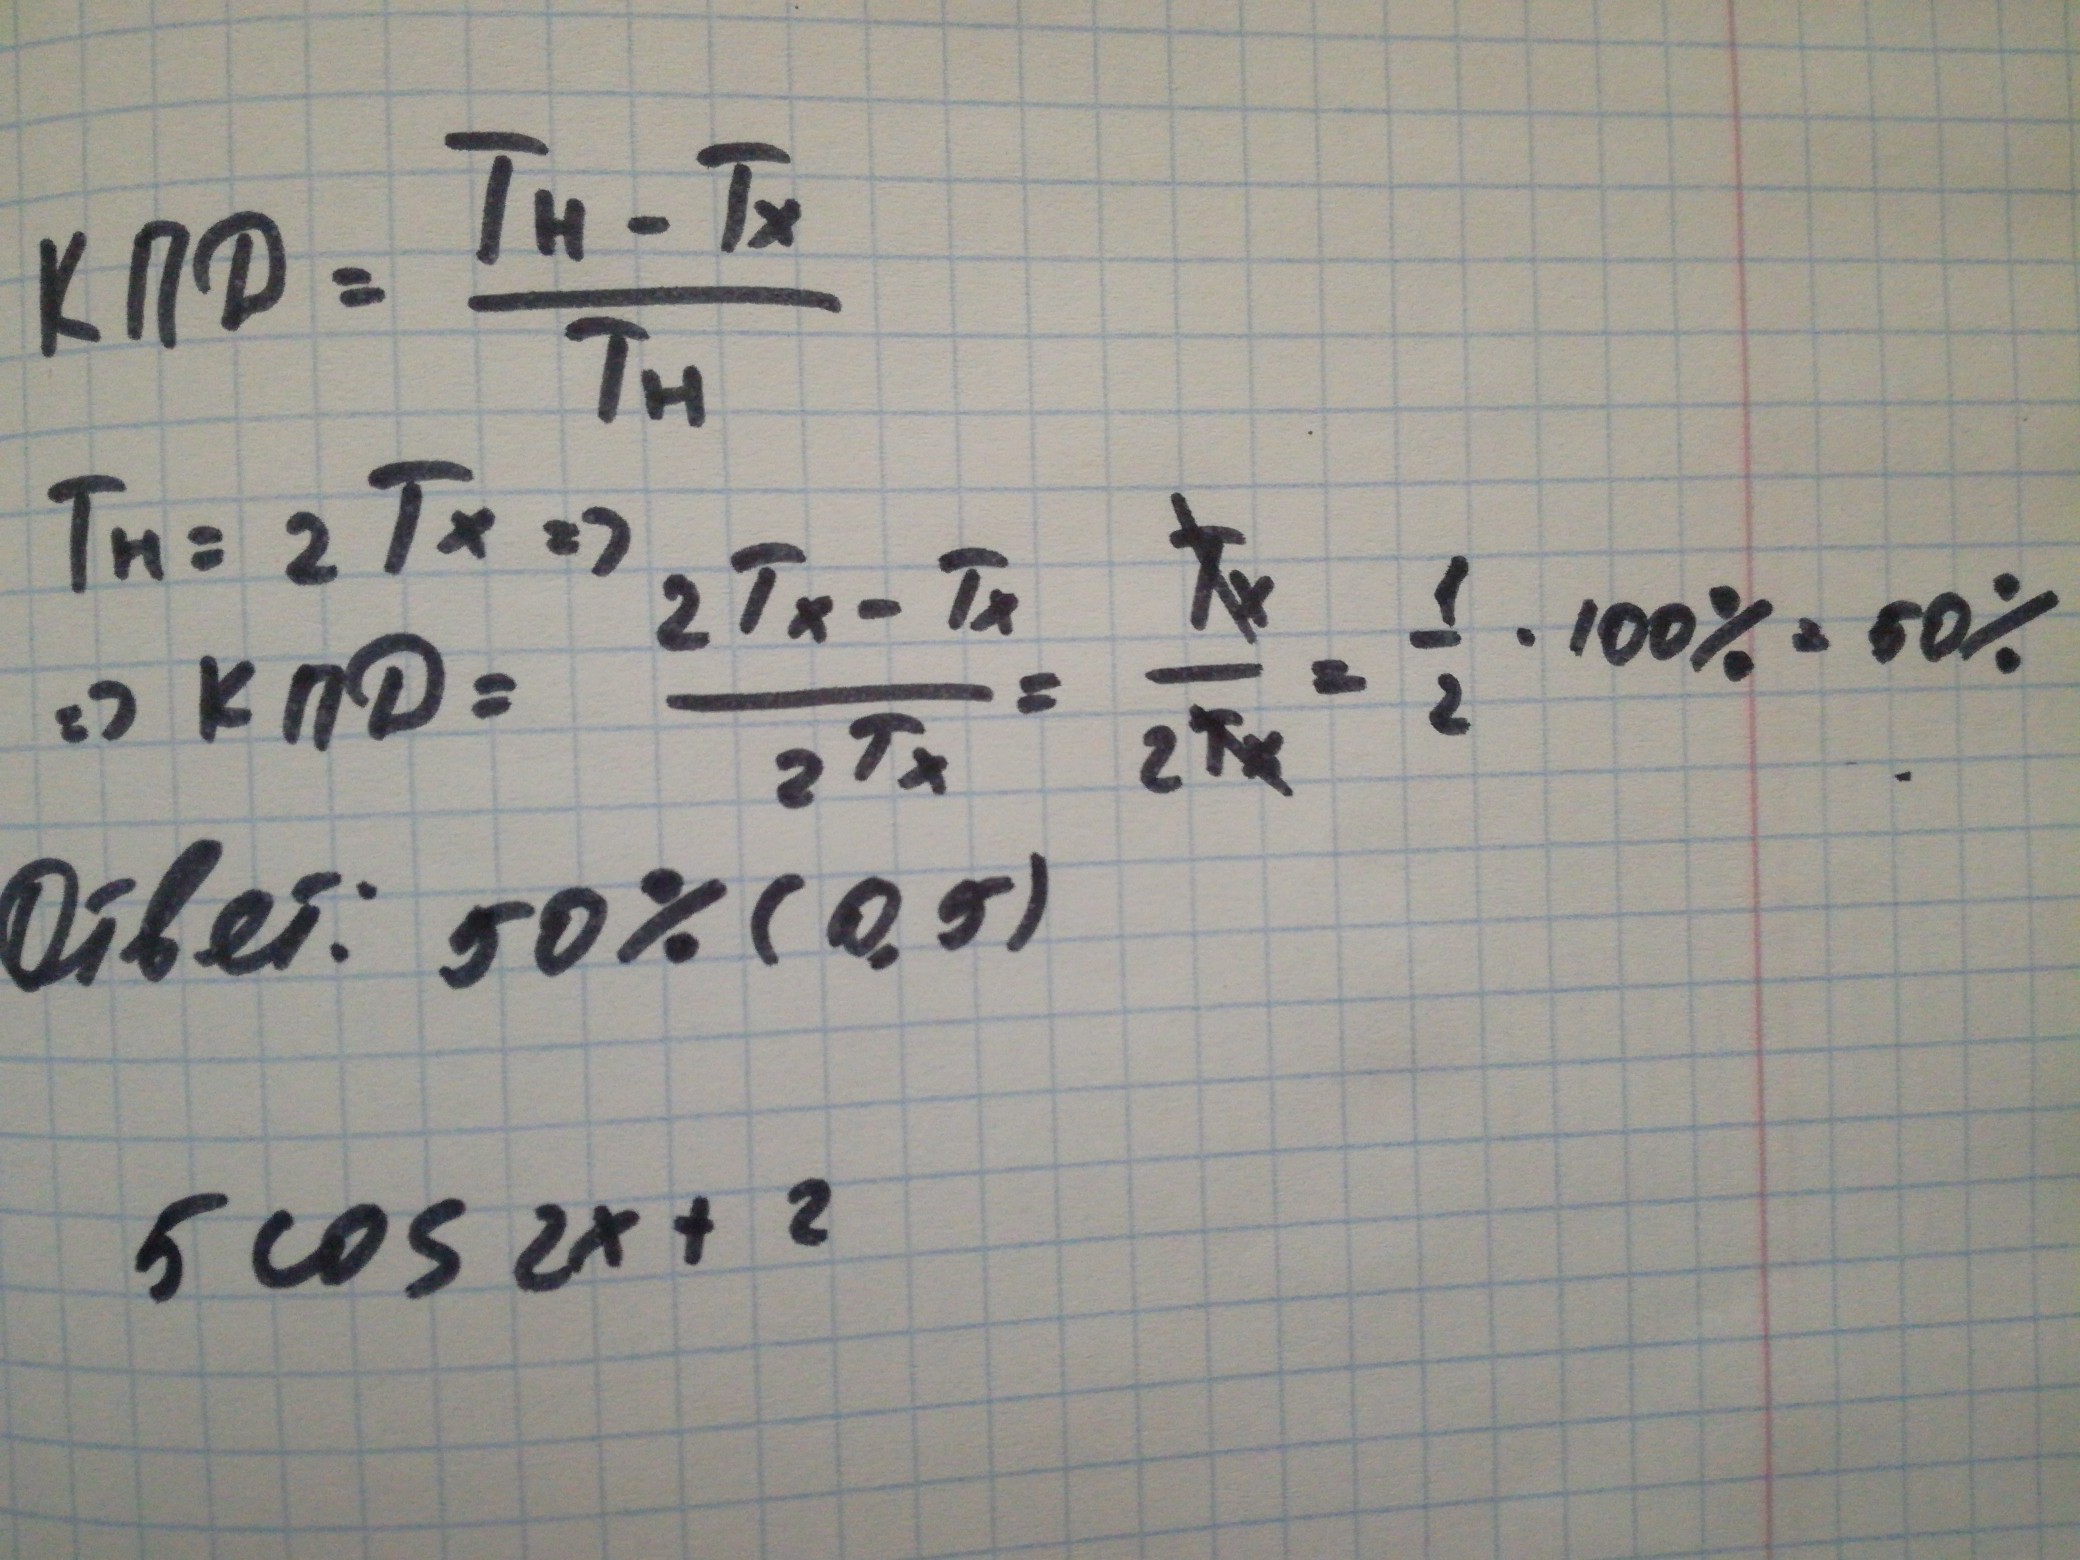 КПД = (Тн - Тх) / Тн
Тн = 2 Тх =>
=> КПД = (2Тх - Тх) / (2Тх) = Тх / (2Тх) = 1/2 · 100% = 50%
Ответ: 50% (0,5)
5 cos 2x + 2